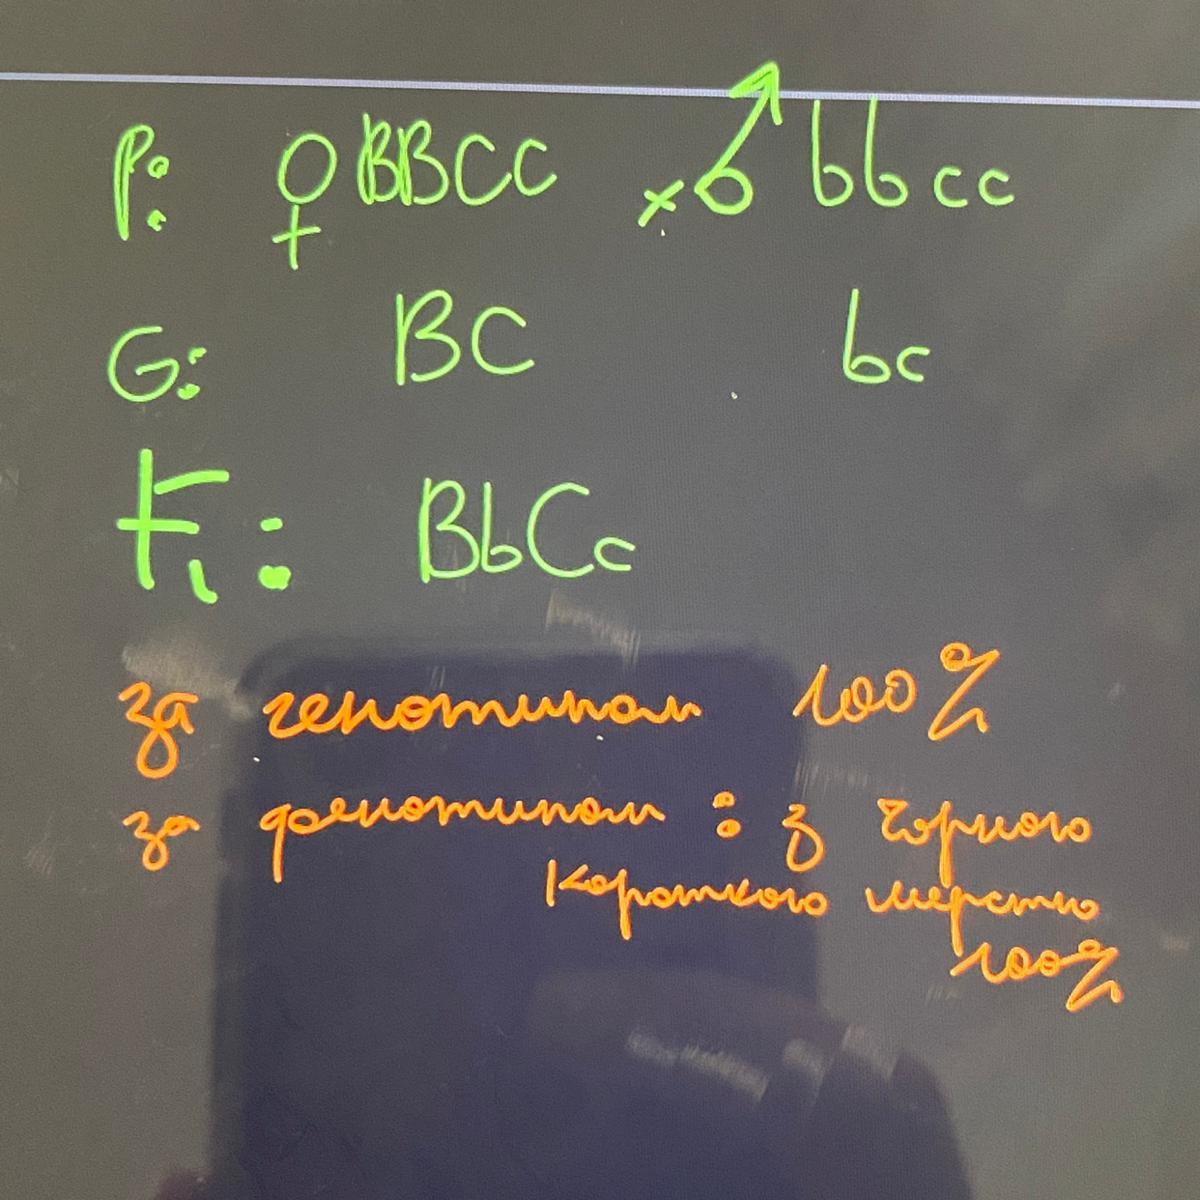 P: ♀ BBCC × ♂ bbcc
G: BC bc
F₁: BbCc
за генотипом 100%
за фенотипом: з чорною
короткою шерстю
100%